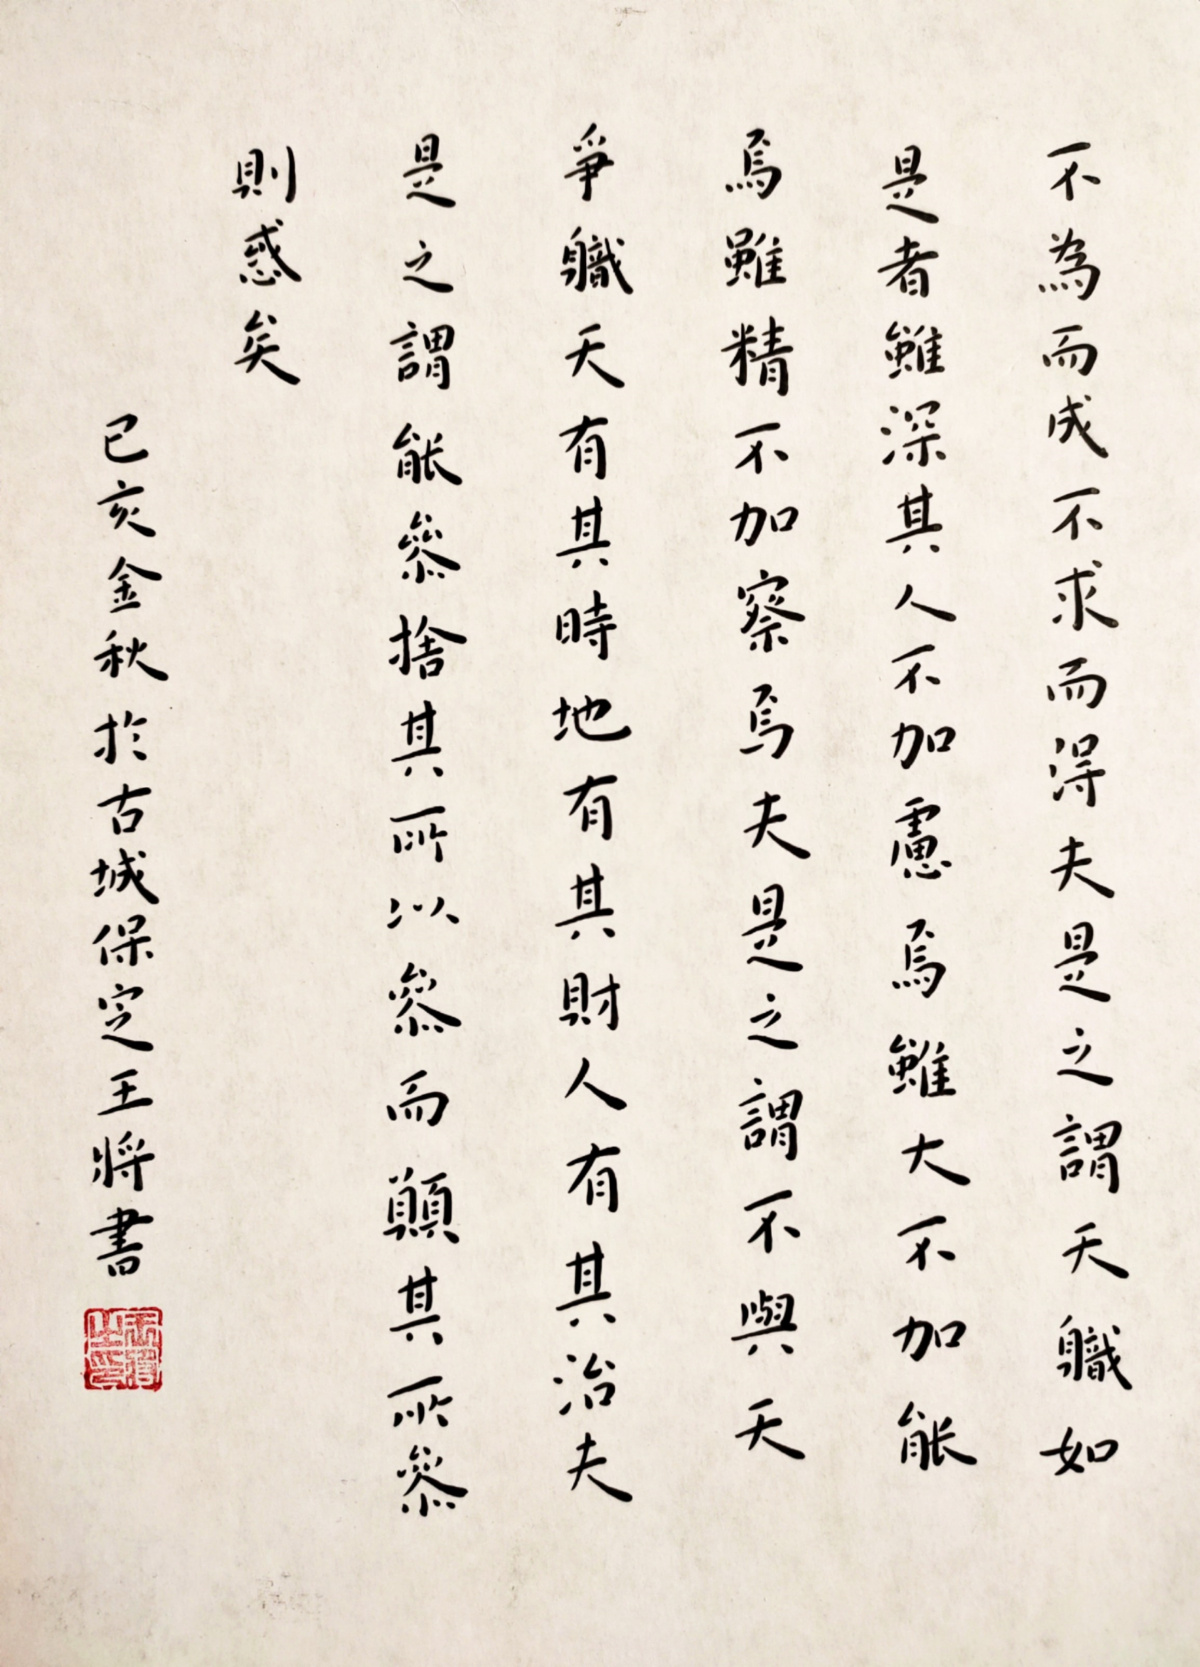 不為而成不求而得夫是之謂天軄如
是者雖深其人不加慮焉雖大不加能
焉雖精不加察焉夫是之謂不與天
爭軄天有其時地有其財人有其治夫
是之謂能參捨其所以參而願其所參
則惑矣
己亥金秋於古城保定王將書
王將之印